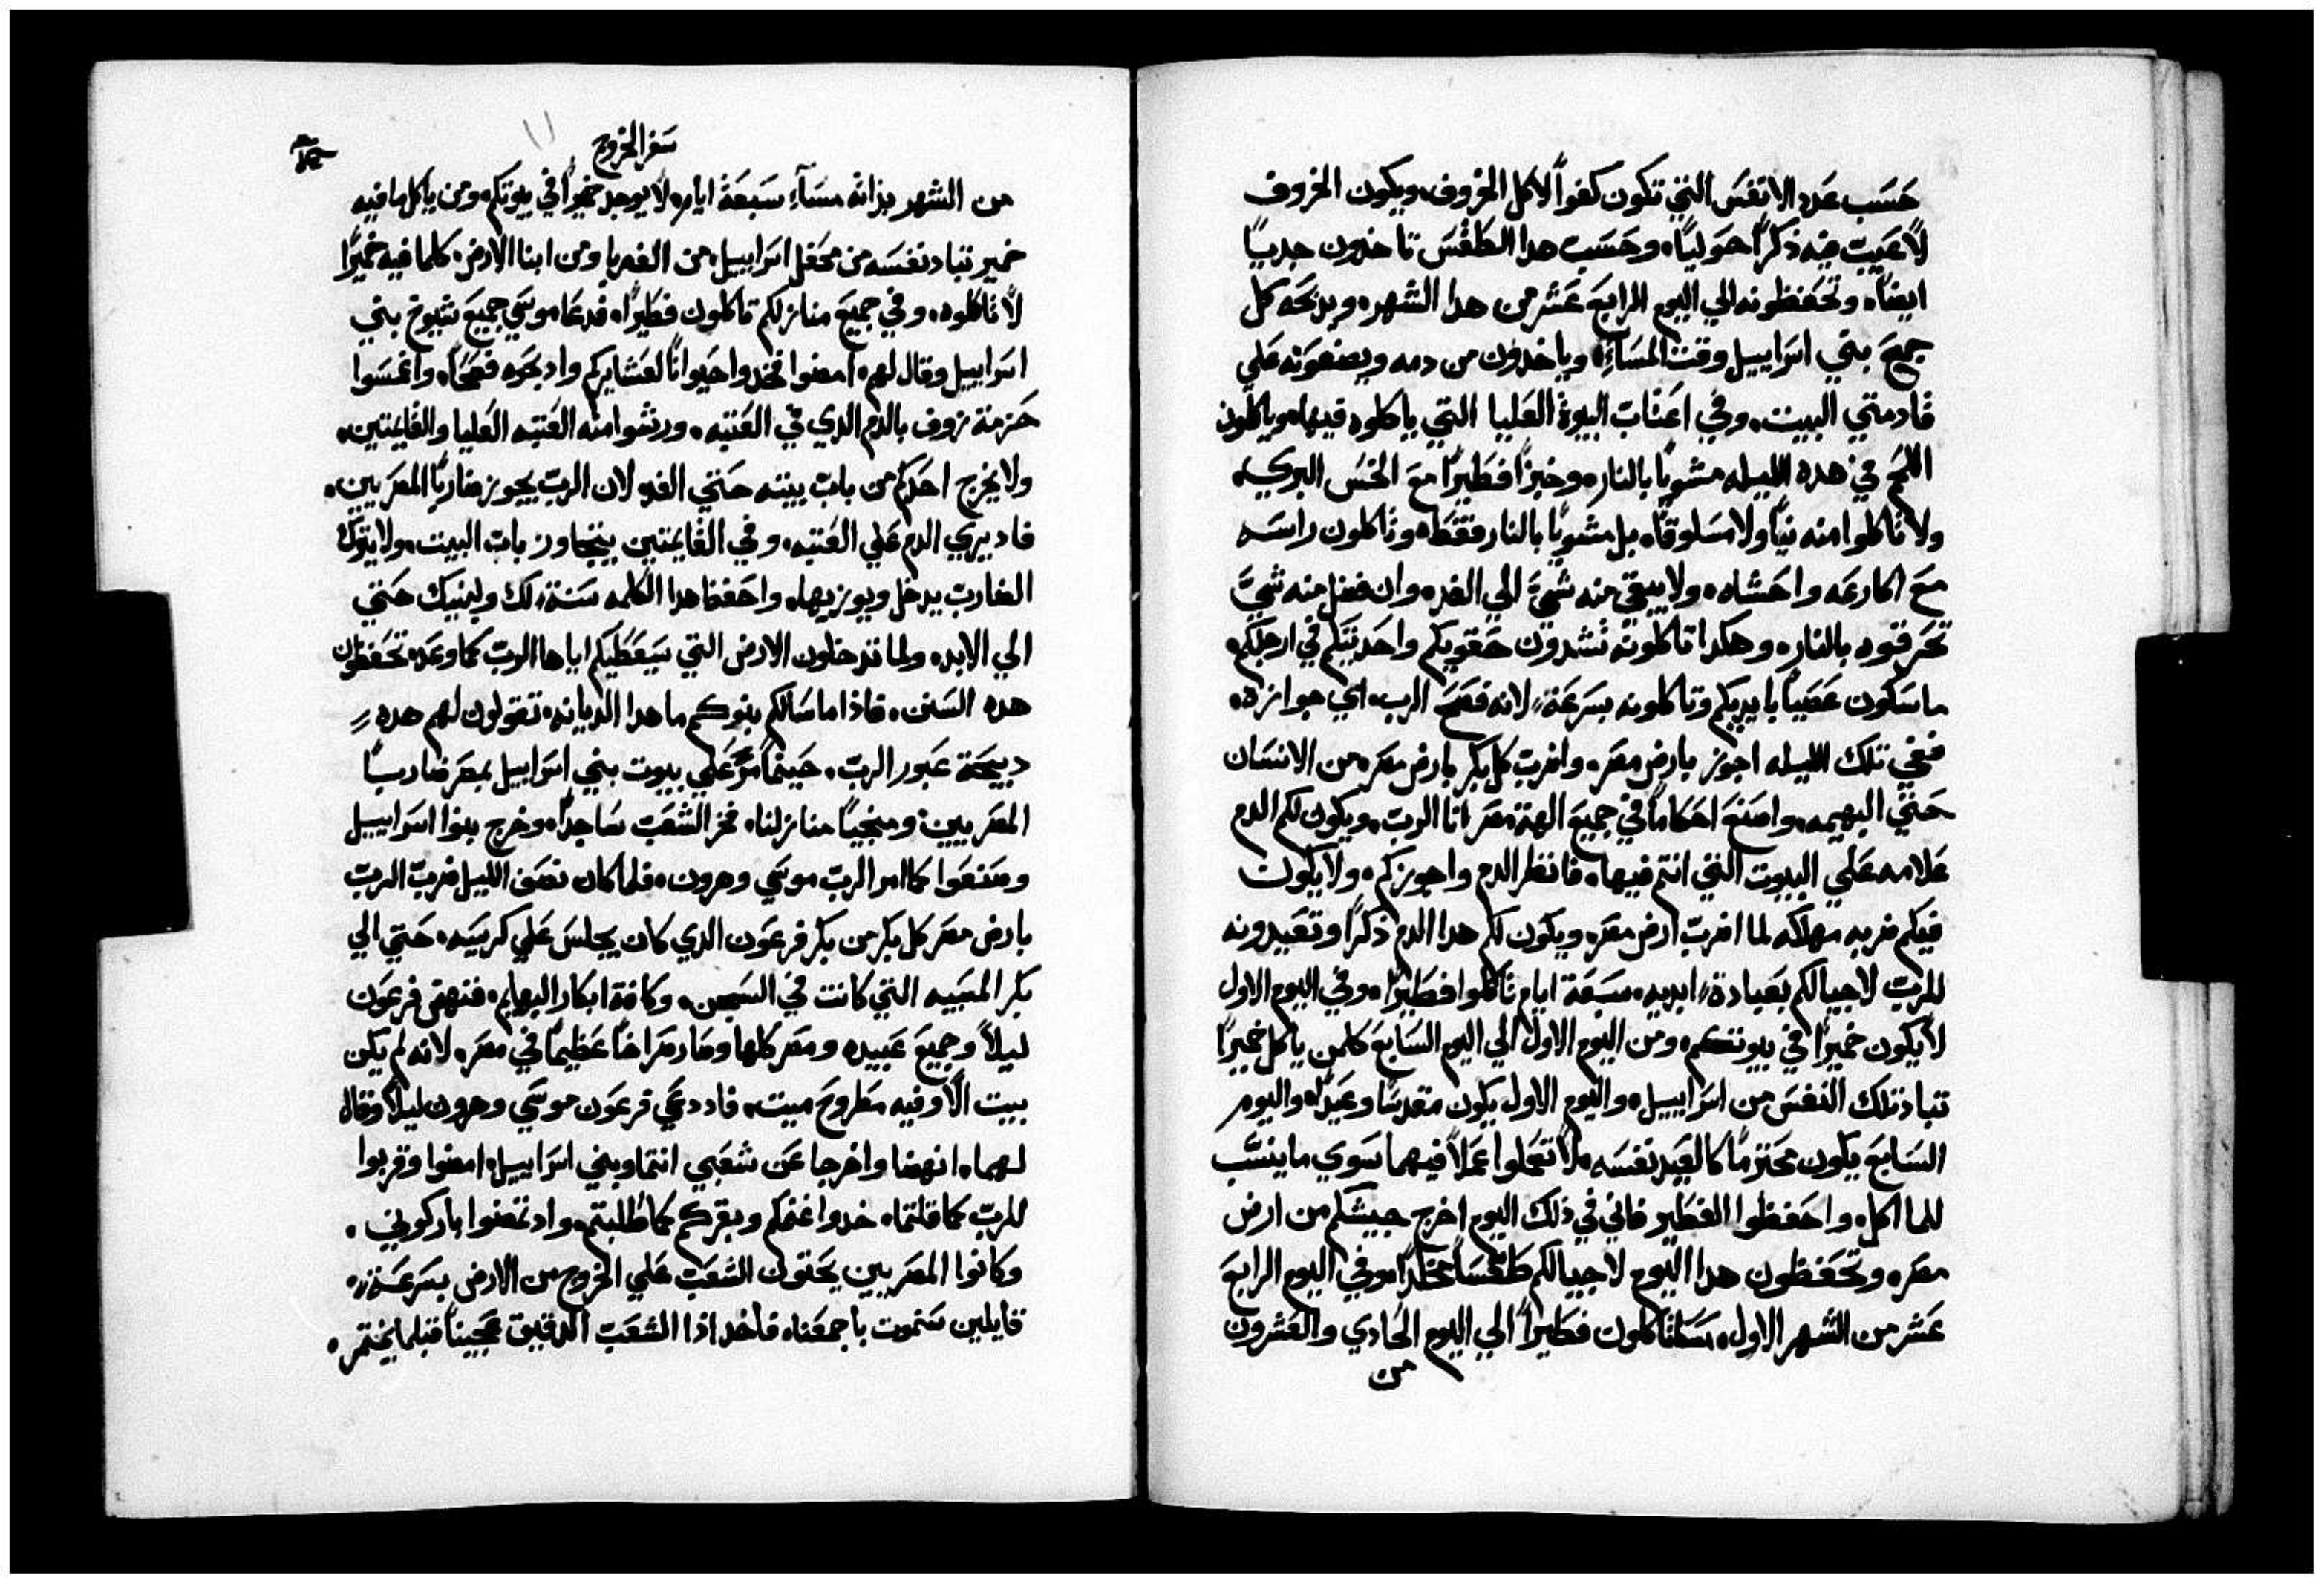 حَسَب عَدد الانفسَ التي تكون كفواً لاكل الخروف، ويكون الخروف
لا عَيبَ فيه ذكراً حَولياً، وحَسَب هدا الطَقسَ تاخدون جدياً
ايضاً، وتحَفظونه الي اليوم الرابعَ عَشر من هدا الشهر، ويدبحَه كل
جميعَ بني اسَراييل وقت المسَاءِ، وياخدون من دمه ويضعَونه عَلي
قادمتي البيت، وفي اعَتاب البيوة العَليا التي ياكلوه فيها، وياكلون
اللحَم في هده الليله مشوياً بالنار، وخبزاً فطَيراً معَ الخسَ البري،
ولا تاكلوا منه نياً ولا مسَلوقاً، بل مشوياً بالنار فقطَ، وتاكلون راسَه
معَ اكارعَه واحَشاه، ولا يبقي منه شيءَ الي الغد، وان فضل منه شيَّ
تحَرقوه بالنار، وهكدا تاكلونه تشدون حَقويكم واحَديتكم في ارجلكم،
ماسَكون عَصياً بايديكم وتاكلونه بسَرعَةٍ، لانه فصَحَ الرب، اي جوازه،
ففي تلك الليله اجوز بارض مصَر، واضرب كل بكر بارض مصَر، من الانسَان
حَتي البهيمه، واصنعَ احَكاماً في جميعَ الهة مصَر انا الربّ، ويكون لكم الدم
عَلامه عَلي البيوت التي انتم فيها، فانظر الدم واجوزكم، ولا يكون
فيكم ضربه مهلكه لما اضربَ ارض مصَر، ويكون لكم هدا الدم ذكراً وتعَيدونه
للربّ لاجيالكم بعَبادةٍ ابديه، سَبعَة ايام تاكلوا فطَيراً، وفي اليوم الاول
لا يكون خميراً في بيوتكم، ومن اليوم الاول الي اليوم السَابعَ كلمن ياكل خميراً
تباد تلك النفسَ من اسَراييل، واليوم الاول يكون مقدسَاً وعَيداً، واليوم
السَابعَ يكون محَترماً كالعَيد نفسَه، لا تعَملوا عَملاً فيهما سَوي ما ينسَب
للماكل، واحَفظوا الفطَير فاني في ذلك اليوم اخرج جيشكم من ارض
مصَر، وتحَفظون هدا اليوم لاجيالكم طَقسَاً مخلداً، وفي اليوم الرابعَ
عَشر من الشهر الاول، مسَاً تاكلون فطَيراً الي اليوم الحَادي والعَشرون
من
سَفر الخروج
من الشهر بذاته مسَآءِ سَبعَة ايام، لا يوجد خميراً في بيوتكم، ومن ياكل ما فيه
خمير تباد نفسَه من محَفل اسَراييل، من الغربا ومن ابنا الارض، كلما فيه خميراً
لا تاكلوه، وفي جميعَ منازلكم تاكلون فطَيراً، فدعَا موسَي جميعَ شيوخ بني
اسَراييل وقال لهم، امضوا فخدوا حَيواناً لعَشايركم وادبحَوه فصَحَاً، واغمسَوا
حَزمة زوف بالدم الدي في العَتبه، ورشوا منه العَتبه العَليا والقايمتين،
ولا يخرج احَدكم من بابَ بيته حَتي الغد لان الربّ يجوز ضارباً المصَريين،
فاد يري الدم عَلي العَتبه، وفي القايمتين يتجاوز بابَ البيت، ولا يترك
الضاربَ يدخل بيوتكم ويوديها، واحَفظ هدا الكلمه سَنة، لك ولبنيك حَتي
الي الابد، ولما تدخلون الارض التي سَيعَطَيكم اياها الربّ كما وعَد، تحَفظون
هده السَنن، فاذا ما سَالكم بنوكم ما هدا الديانه، تقولون لهم هده
دبيحَة عَبور الربّ، حَينما مرَّ عَلي بيوت بني اسَراييل بمصَر ضارباً
المصَريين، ومنجياً منازلنا، فخر الشعَبَ سَاجداً، وخرج بنوا اسَراييل
وصَنعَوا كما امر الربّ موسَي وهرون، فلما كان نصَف الليل ضربَ الربّ
بارض مصَر كل بكر من بكر فرعَون الدي كان يجلسَ عَلي كرسَيه، حَتي الي
بكر المسَبيه التي كانت في السَجن، وكافة ابكار البهايم، فنهض فرعَون
ليلاً وجميعَ عَبيده ومصَر كلها وصَار صَراخاً عَظيماً في مصَر، لانه لم يكن
بيت الا وفيه مطَروحَ ميت، فاددعَي فرعَون موسَي وهرون ليلاً وقال
لهما، انهضا واخرجا عَن شعَبي انتما وبني اسَراييل، امضوا وقربوا
للربّ كما قلتما، خدوا غنمكم وبقركم كما طَلبتم، واد تمضوا باركوني،
وكانوا المصَريين يحَتون الشعَبَ عَلي الخروج من الارض بسَرعَةٍ،
قايلين سَنموت باجمعَنا، فاخد اذا الشعَبَ الدقيق عَجيناً قبلما يختمر،